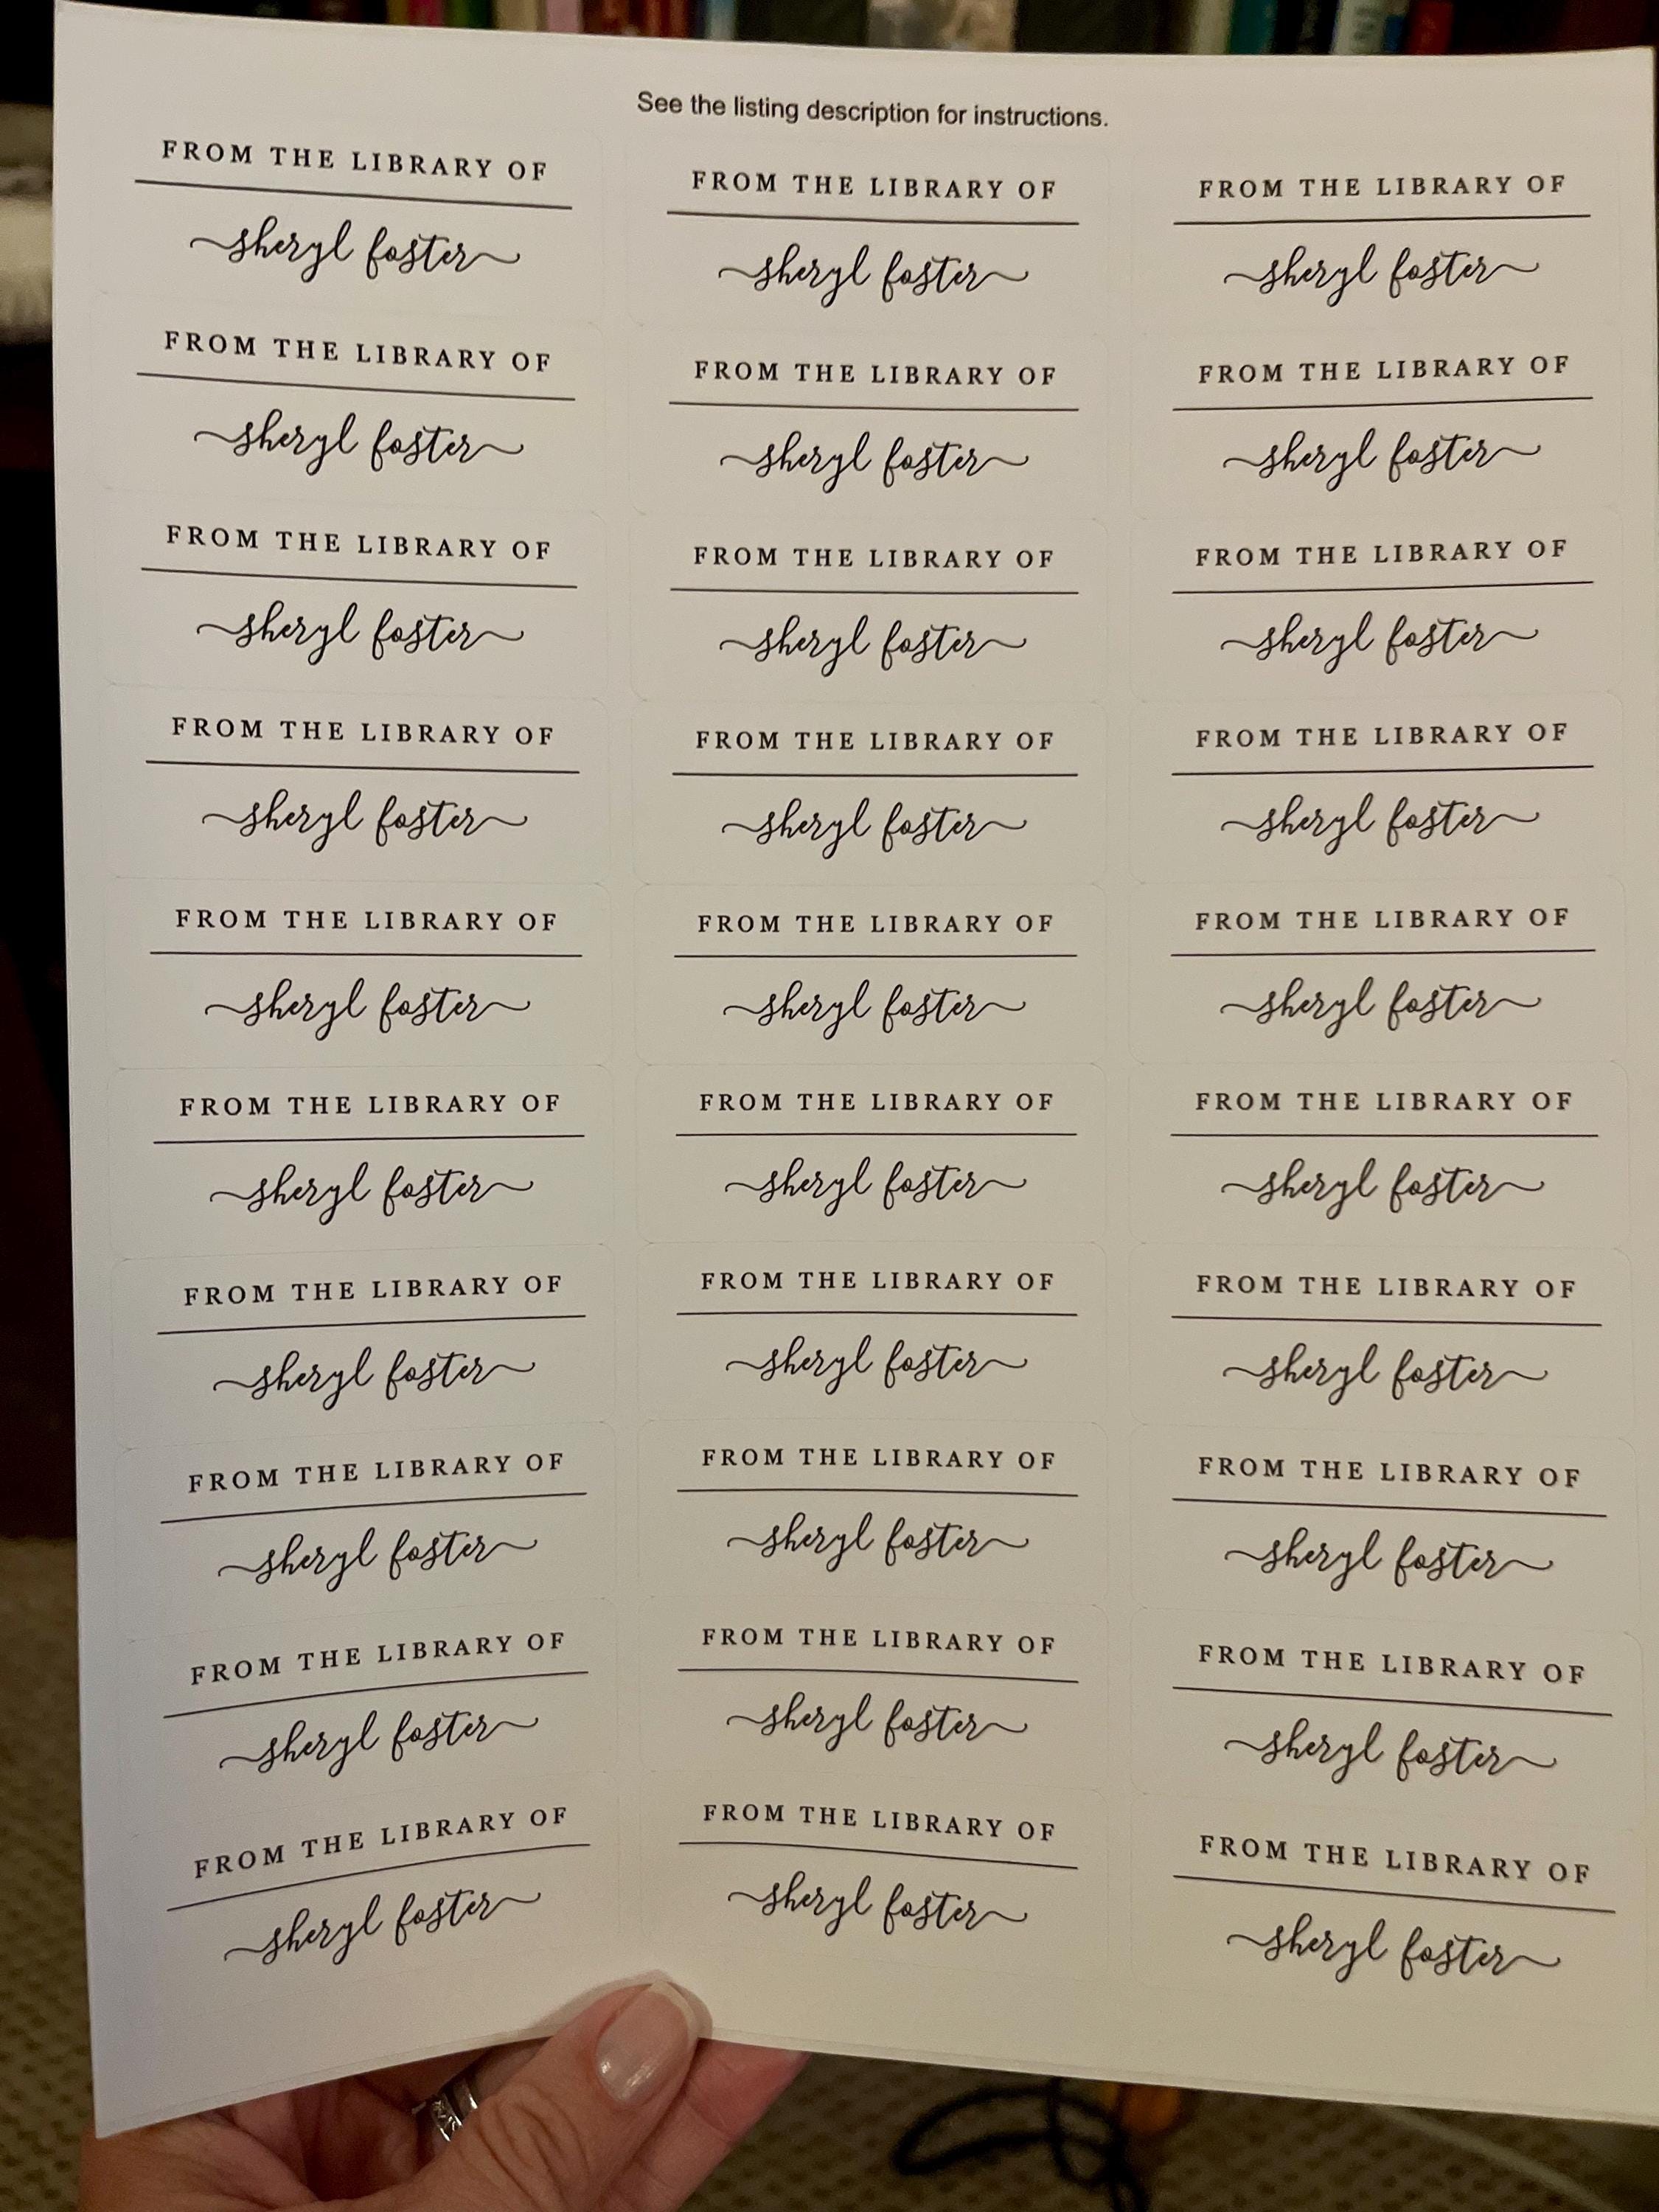 See the listing description for instructions.
FROM THE LIBRARY OF
sheryl foster
FROM THE LIBRARY OF
sheryl foster
FROM THE LIBRARY OF
sheryl foster
FROM THE LIBRARY OF
sheryl foster
FROM THE LIBRARY OF
sheryl foster
FROM THE LIBRARY OF
sheryl foster
FROM THE LIBRARY OF
sheryl foster
FROM THE LIBRARY OF
sheryl foster
FROM THE LIBRARY OF
sheryl foster
FROM THE LIBRARY OF
sheryl foster
FROM THE LIBRARY OF
sheryl foster
FROM THE LIBRARY OF
sheryl foster
FROM THE LIBRARY OF
sheryl foster
FROM THE LIBRARY OF
sheryl foster
FROM THE LIBRARY OF
sheryl foster
FROM THE LIBRARY OF
sheryl foster
FROM THE LIBRARY OF
sheryl foster
FROM THE LIBRARY OF
sheryl foster
FROM THE LIBRARY OF
sheryl foster
FROM THE LIBRARY OF
sheryl foster
FROM THE LIBRARY OF
sheryl foster
FROM THE LIBRARY OF
sheryl foster
FROM THE LIBRARY OF
sheryl foster
FROM THE LIBRARY OF
sheryl foster
FROM THE LIBRARY OF
sheryl foster
FROM THE LIBRARY OF
sheryl foster
FROM THE LIBRARY OF
sheryl foster
FROM THE LIBRARY OF
sheryl foster
FROM THE LIBRARY OF
sheryl foster
FROM THE LIBRARY OF
sheryl foster